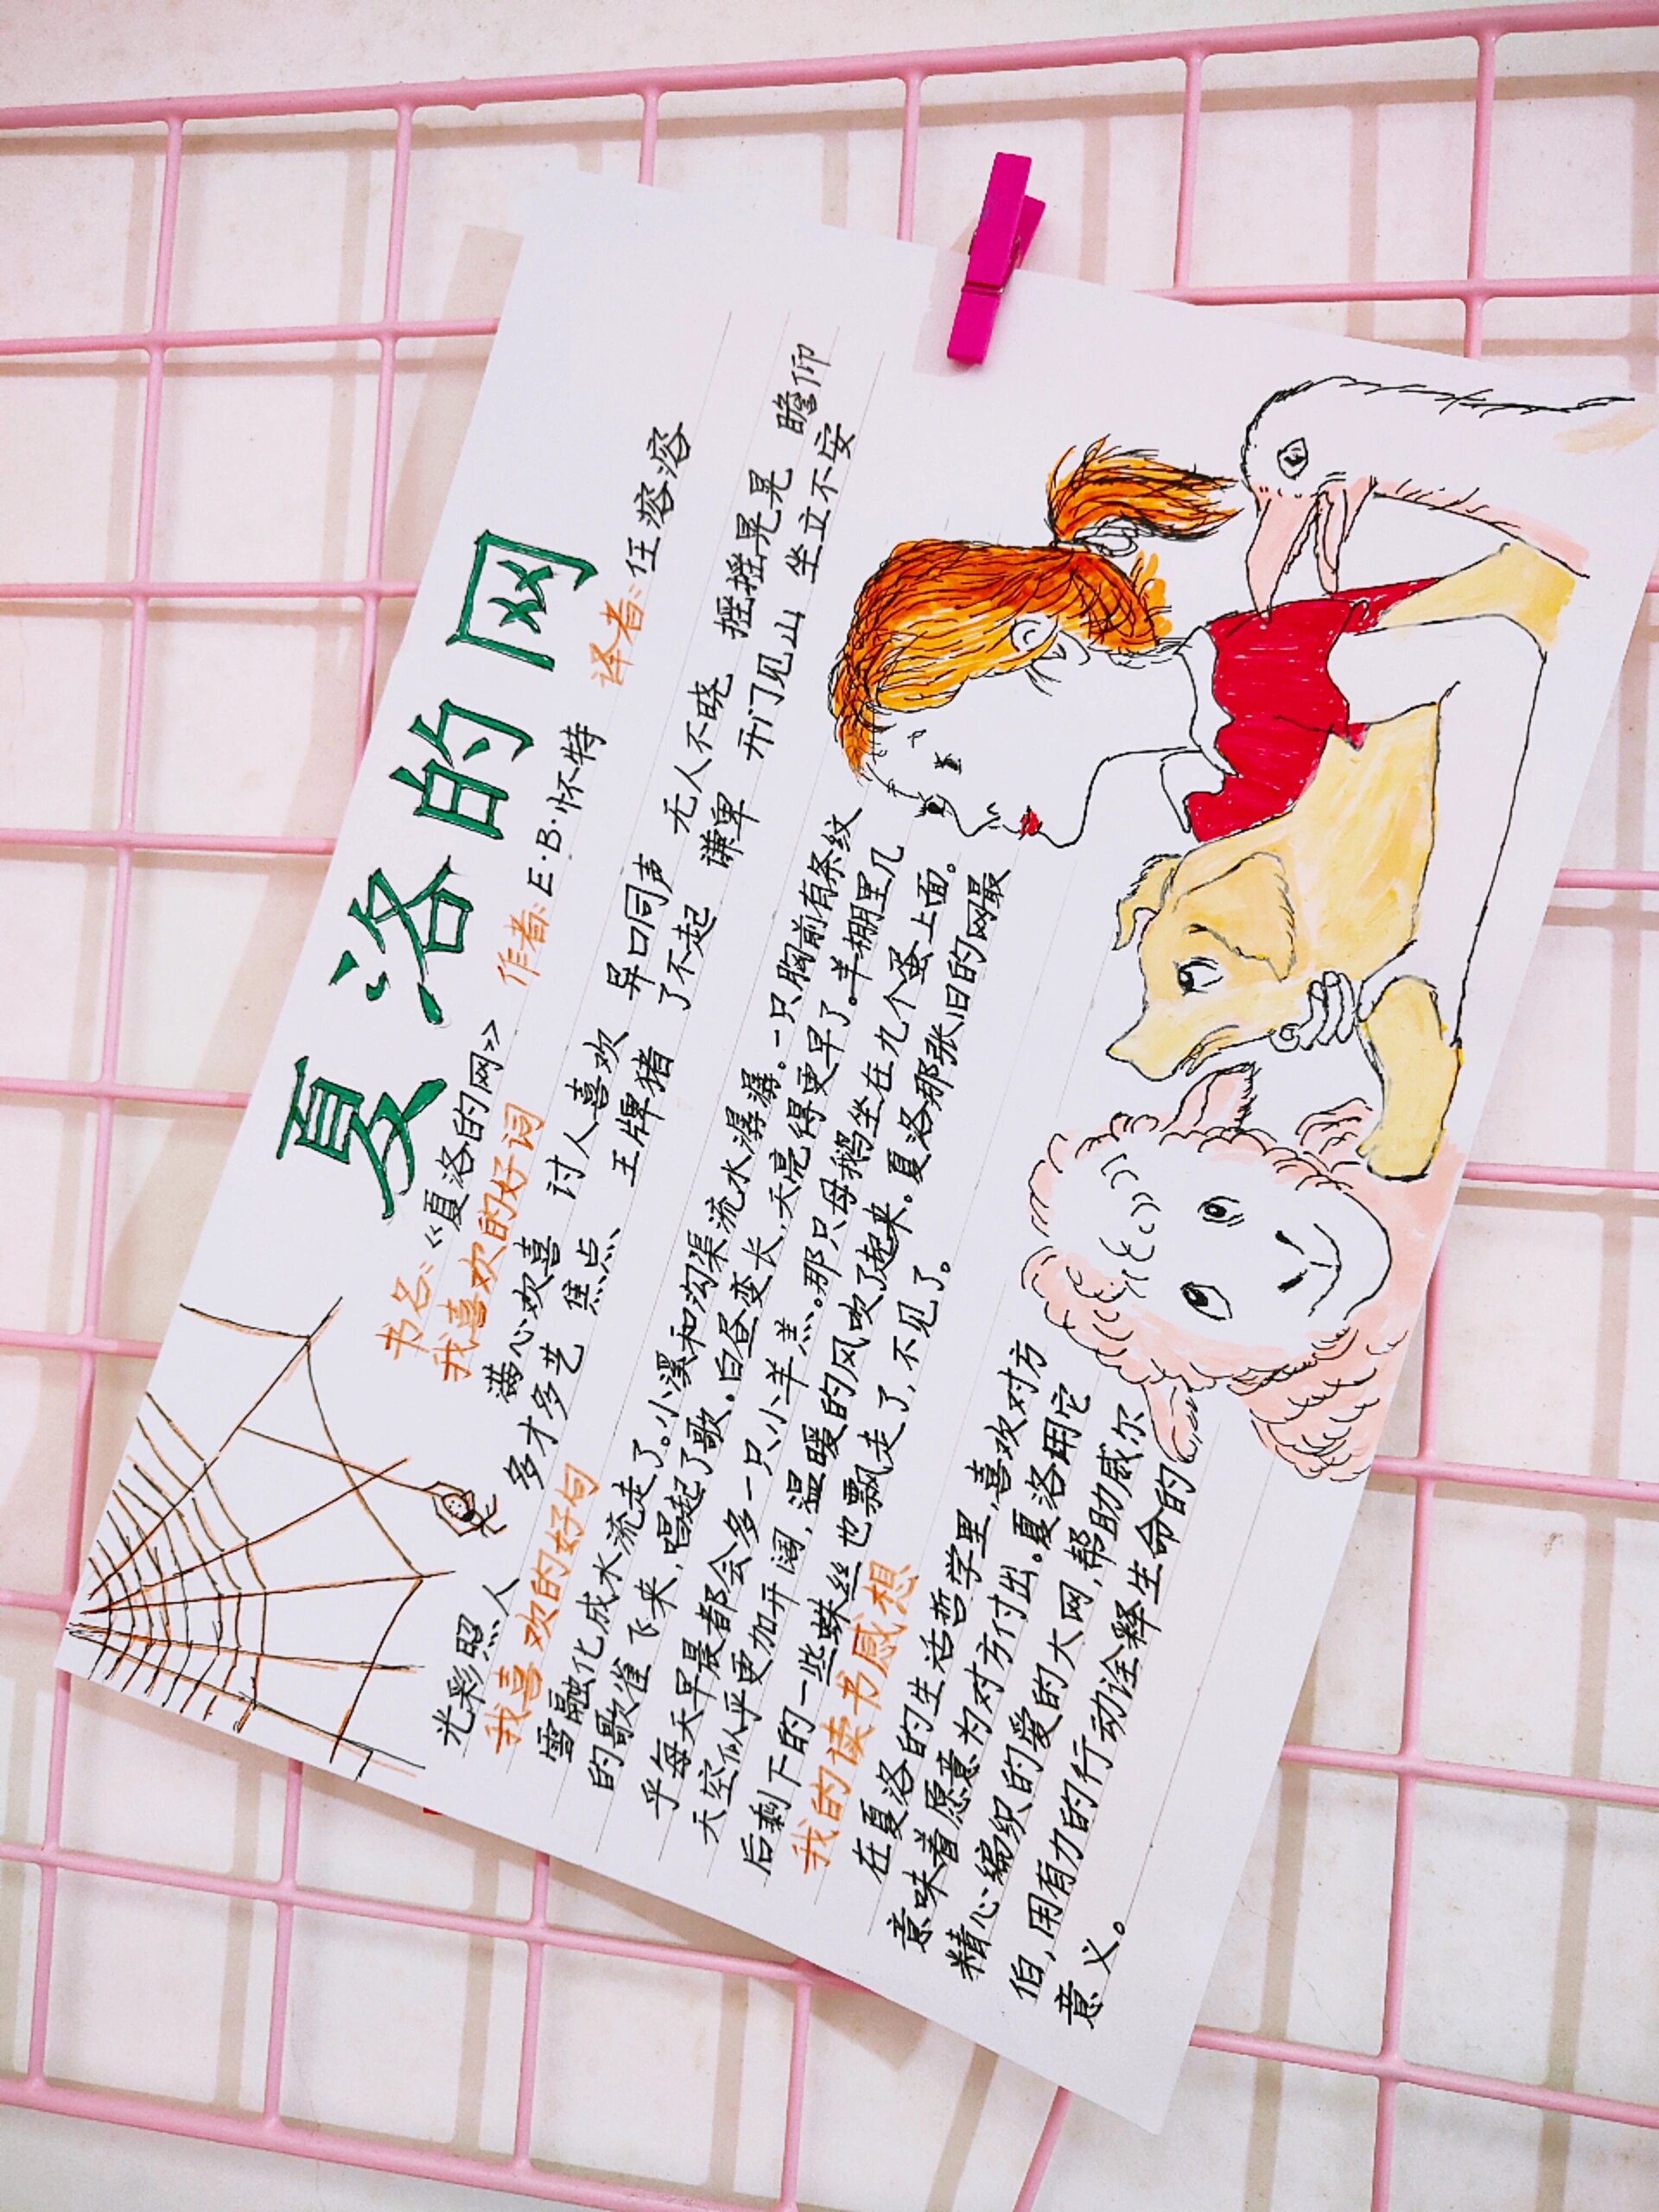 夏洛的网
书名:《夏洛的网》 作者:E·B·怀特 译者:任溶溶
我喜欢的好词
光彩照人 满心欢喜 讨人喜欢 异口同声 无人不晓 摇摇晃晃 瞻仰
多才多艺 焦点 王牌猪 了不起 谦卑 开门见山 坐立不安
我喜欢的好句
雪融化成水流走了。小溪和沟渠流水潺潺。一只胸前有条纹
的歌雀飞来,唱起了歌。白昼变长,天亮得更早了。羊棚里几
乎每天早晨都会多一只小羊羔。那只母鹅坐在九个蛋上面。
天空似乎更加开阔,温暖的风吹了起来。夏洛那张旧的网最
后剩下的一些蛛丝也飘走了,不见了。
我的读书感想
在夏洛的生活哲学里,喜欢对方
意味着愿意为对方付出。夏洛用它
精心编织的爱的大网,帮助威尔
伯,用有力的行动诠释生命的
意义。